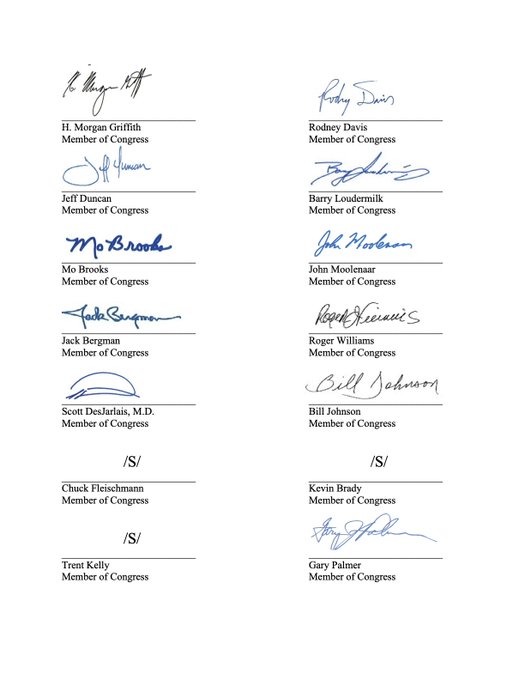 H. Morgan Griffith
Member of Congress
Rodney Davis
Rodney Davis
Member of Congress
Jeff Duncan
Jeff Duncan
Member of Congress
Barry Loudermilk
Member of Congress
Mo Brooks
Mo Brooks
Member of Congress
John Moolenaar
John Moolenaar
Member of Congress
Jack Bergman
Jack Bergman
Member of Congress
Roger Williams
Roger Williams
Member of Congress
Scott DesJarlais, M.D.
Member of Congress
Bill Johnson
Bill Johnson
Member of Congress
/S/
Chuck Fleischmann
Member of Congress
/S/
Kevin Brady
Member of Congress
/S/
Trent Kelly
Member of Congress
Gary Palmer
Member of Congress